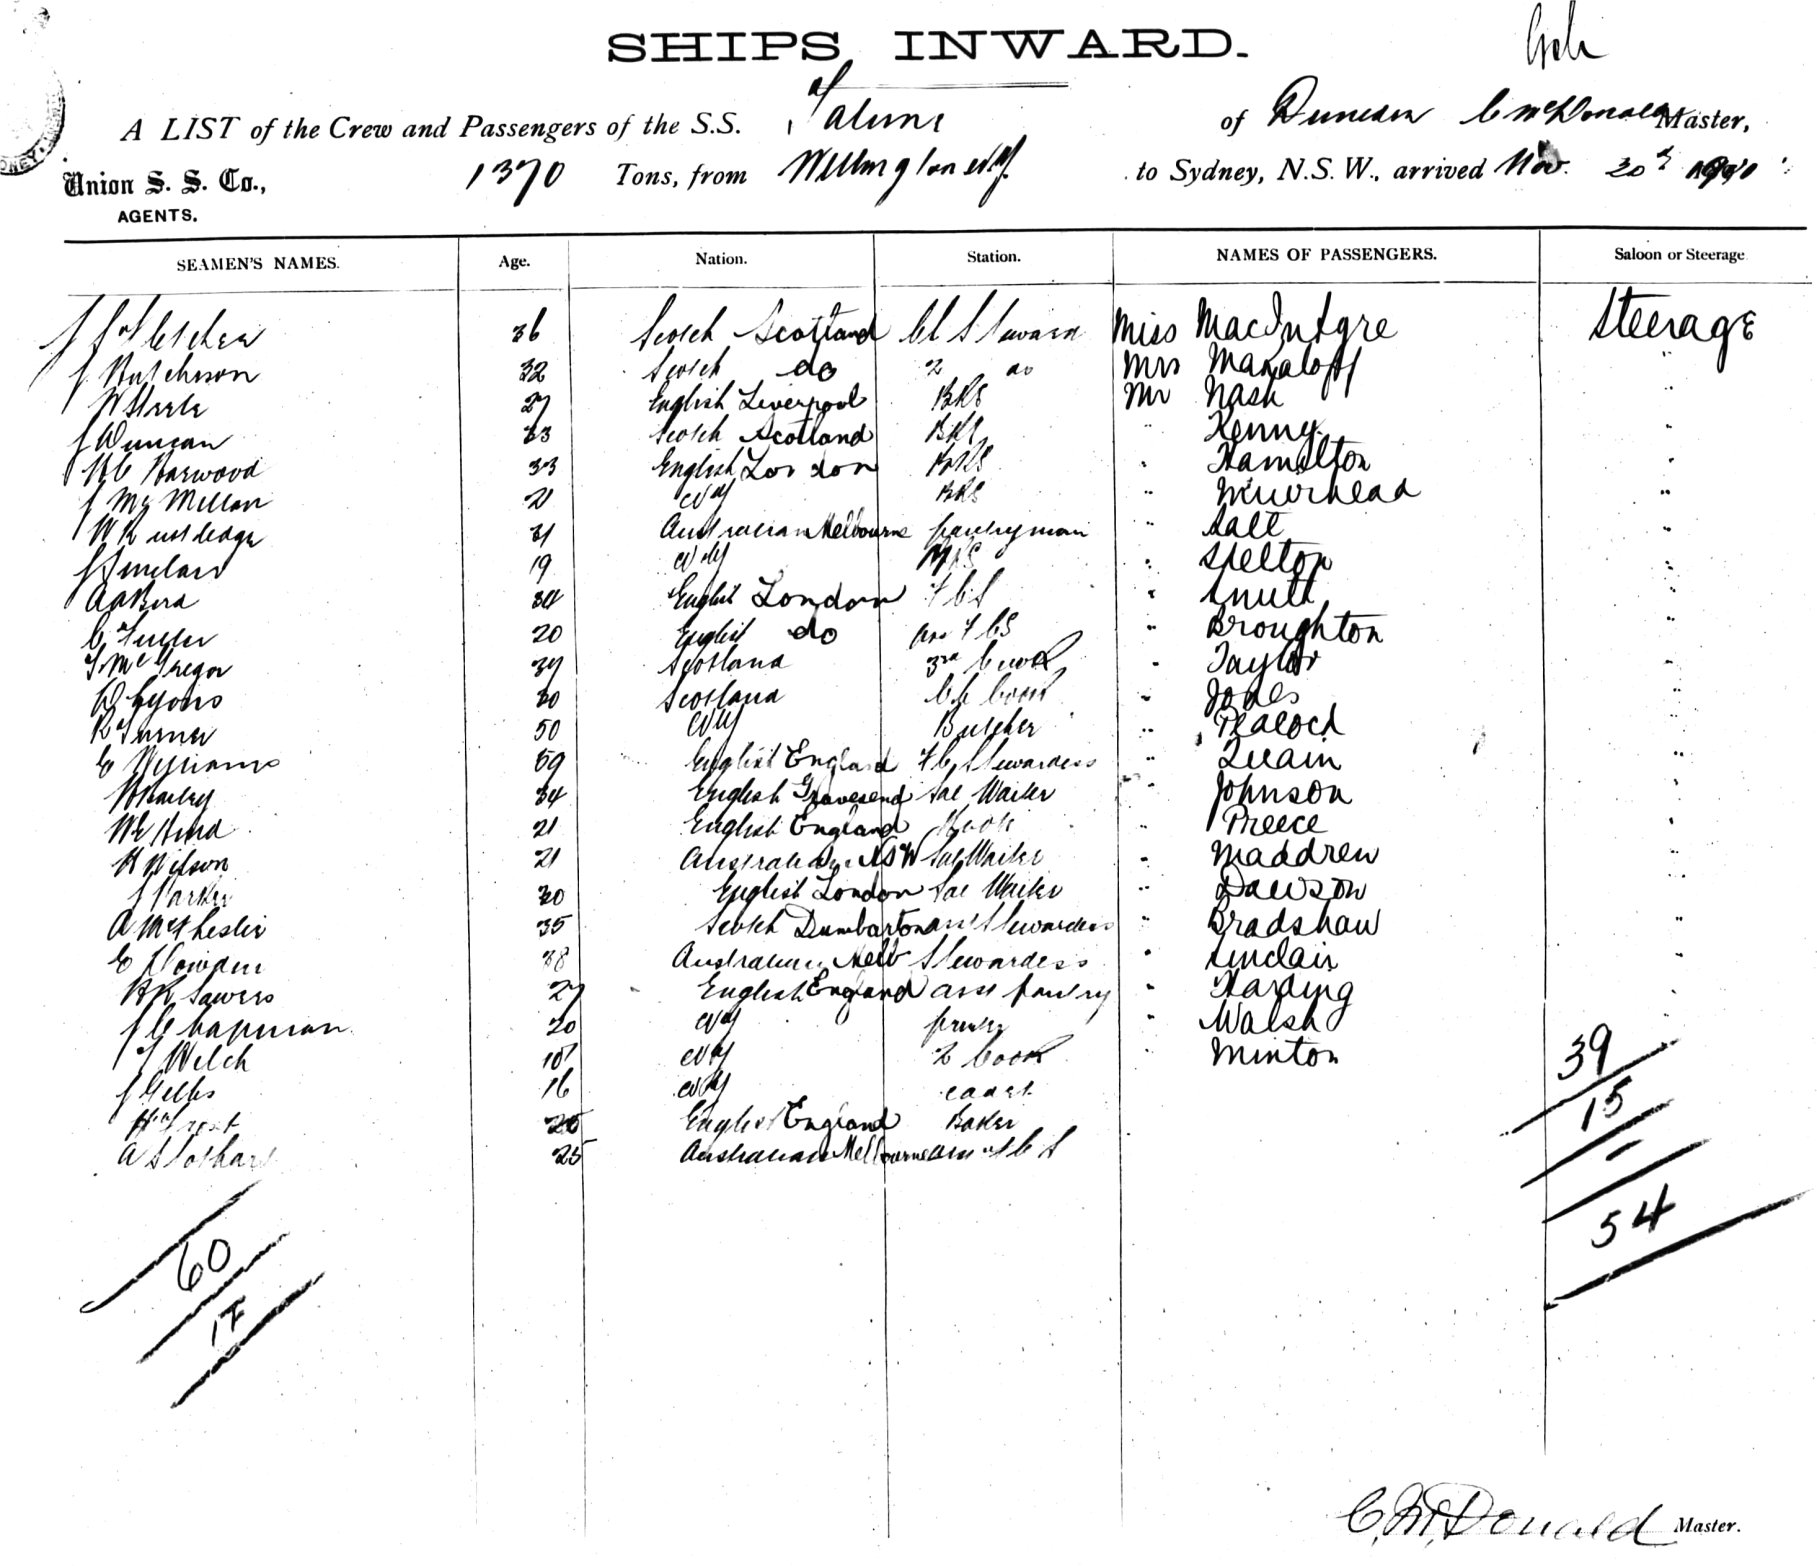 SHIPS INWARD.
A LIST of the Crew and Passengers of the S.S. Talune of Dunedin C McDonald Master,
Union S. S. Co., 1370 Tons, from Wellington to Sydney, N.S.W., arrived Nov. 30th
AGENTS.
SEAMEN'S NAMES. Age. Nation. Station. NAMES OF PASSENGERS. Saloon or Steerage
J Fletcher 36 Scotch Scotland Ch Steward Miss MacIntyre Steerage
J Hutchison 32 Scotch do 2 do Mrs Makaloff "
27 English Liverpool BRS Mr Nash "
J Duncan 33 Scotch Scotland BRS " Kenny "
Harwood 33 English London BRS " Hamilton "
J McMillan 21 NZ BRS " Muirhead "
W Rutledge 31 Australian Melbourne pantryman " Salt "
J Sinclair 19 NZ " Skelton "
A Bird 34 English London F C S " Smith "
20 English do " Broughton "
McGregor Scotland 3rd Cook " Taylor "
Lyons 30 Scotland Ch Cook " Jones "
R Turner 50 NZ Butcher " Peacock "
E Williams 59 English England F C Stewardess " Quain "
H Bailey 34 English Gravesend Sal Waiter " Johnson "
21 English England " Preece "
H Wilson 21 Australian NSW Sal Waiter " Maddren "
J Parker 20 English London Sal Waiter " Dawson "
A 35 Scotch Dumbarton Stewardess " Bradshaw "
E 38 Australian Melb Stewardess " Sinclair "
Sawers 27 English England asst pantry " Harding "
J Chapman. 20 NZ " Walsh "
Welch NZ 2 Cook " Minton
J 16 NZ 39
English England Baker 15
A Stothart 25 Australian Melbourne
54
60
17
C. McDonald Master.